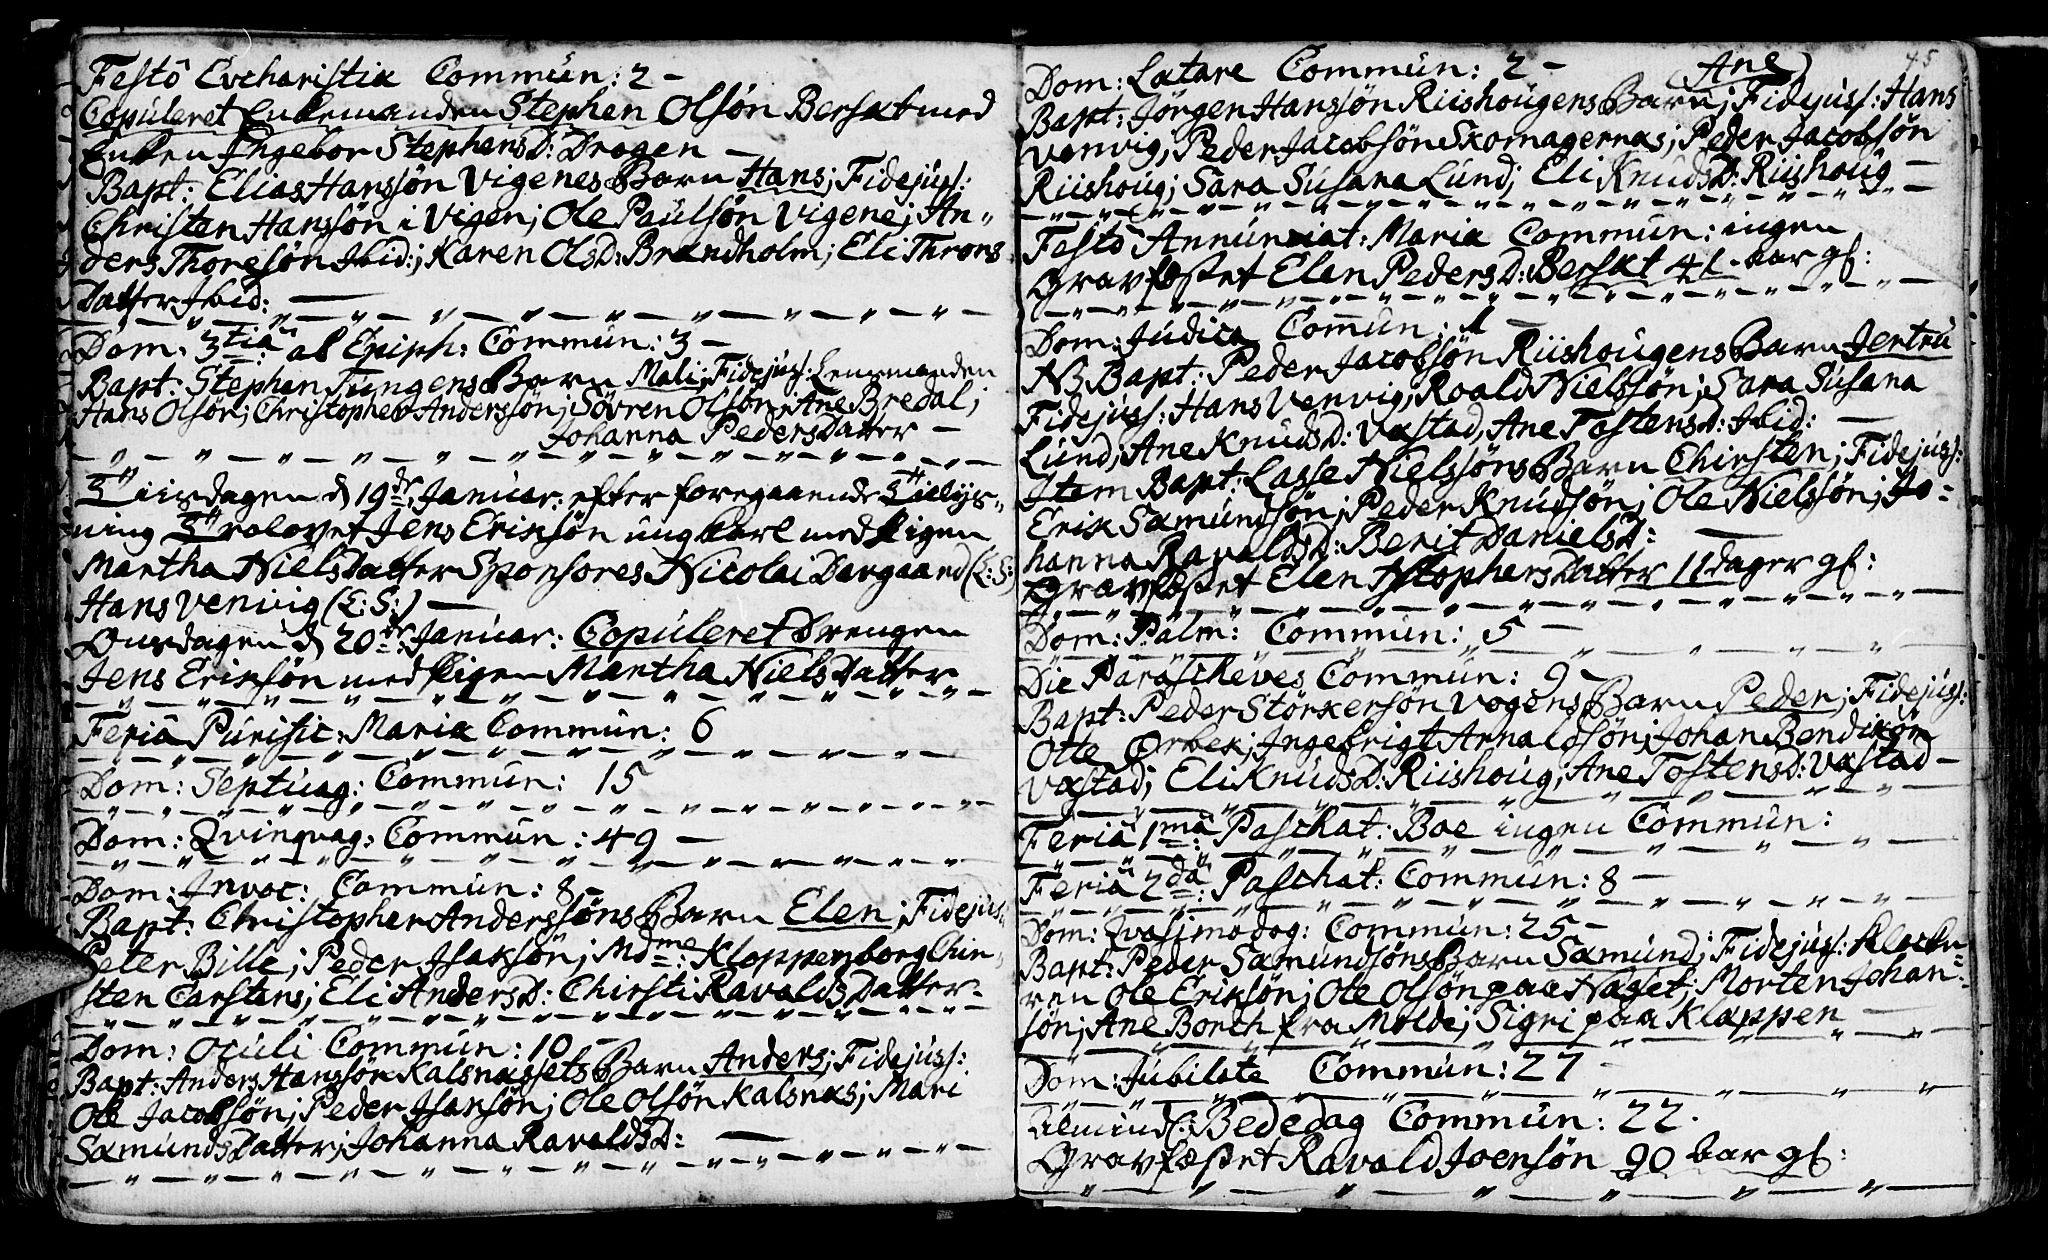 Festo Evcharistiæ Commun: 2 –
Copuleret Enkemanden Stephen Olsøn Bersæt med
Enken Ingebor StephensD: Dragen –
Bapt: Elias Hanssøn Vigenes Barn Hans; Fidejuss:
Christen Hanssøn i Vigen; Ole Paulsøn Vigene; An„
ders Thoresøn Ibid:; Karen OlsD: Brandholm; Eli Throns
Datter Ibid: –
Dom. 3tiâ ab Epiph: Commun: 3 –
Bapt: Stephen Tungens Barn Mali; Fidejuss: Lensmanden
Hans Olsøn; Christopher Anderssøn; Søvren Olsøn; Ane Bredal;
Johanna PedersDatter –
Tiirsdagen d 19de Januar: efter foregaaende Tillys„
ning Trolovet Jens Eriksøn ung karl med Pigen
Martha NielsDatter Sponsores Nicolai Dargaard (L:S:)
Hans Venvig (L:S:) –
Onsdagen d 20de Januar: Copuleret Drengen
Jens Eriksøn med Pigen Martha NielsDatter
Feriâ Purific: Mariæ Commun: 6
Dom: Septuag: Commun: 15
Dom: Qvinqvag: Commun: 49 –
Dom: Invoc: Commun: 8 –
Bapt: Christopher Anderssøns Barn Elen; Fidejuss:
Peter Bille; Peder Isaksøn; Mdme: Kloppenborg Chir„
sten Carstens; Eli AndersD: Chirsti RavaldsDatter –
Dom: Oculi Commun: 10 –
Bapt: Anders Hanssøn Kalsnæssets Barn Anders; Fidejuss:
Ole Jacobsøn; Peder Isaksøn; Ole Olsøn Kalsnæs; Mari
SæmundsDatter; Johanna RavaldsD: –
45
Dom: Lætare Commun: 2 – Ane
Bapt: Jørgen Hanssøn Riishougens Barn; Fidejuss: Hans
Venvig; Peder Jacobsøn Skomagernæs; Peder Jacobsøn
Riishoug; Sara Susana Lund; Eli KnudsD: Riishoug –
Festo Annunciat: Mariæ Commun: ingen
Gravfæstet Elen PedersD: Bersæt 41 Aar gl:
Dom: Judica Commun: 1 –
NB Bapt: Peder Jacobsøn Riishougens Barn Jertru
Fidejuss: Hans Venvig; Roald Nielssøn; Sara Susana
Lund; Ane KnudsD: Vastad, Ane TostensD: Ibid: –
Item Bapt: Lasse Nielssøns Barn Chirsten; Fidejuss:
Erik Sæmundsøn; Peder Knudsøn; Ole Nielssøn; Jo=
hanna RavaldsD: Berit DanielsD: –
Gravfæstet Elen StophersDatter 11 dager gl:
Dom: Palm: Commun: 5 –
Die Parascheves Commun: 9 –
Bapt: Peder Størkersøn Vogens Barn Peder; Fidejuss:
Otte Ørbek; Ingebrigt Arnaldsøn; Johan Bendixøn
Vastad; Eli KnudsD: Riishoug; Ane TostensD: Vastad –
Feriâ 1mâ: Paschat: Boe ingen Commun:
Feriâ 2dâ: Paschat: Commun: 8 –
Dom: Qvasimodog: Commun: 25 –
Bapt: Peder Sæmundsøns Barn Sæmund; Fidejuss: Klocke=
ren Ole Eriksøn; Ole Olsøn paa Næset; Morten Johan=
søn; Ane Borch fra Molde; Sigri paa Kloppen –
Dom: Jubilate Commun: 27 –
Almindl: Bededag Commun: 22.
Gravfæstet Ravald Joensøn 90 Aar gl: